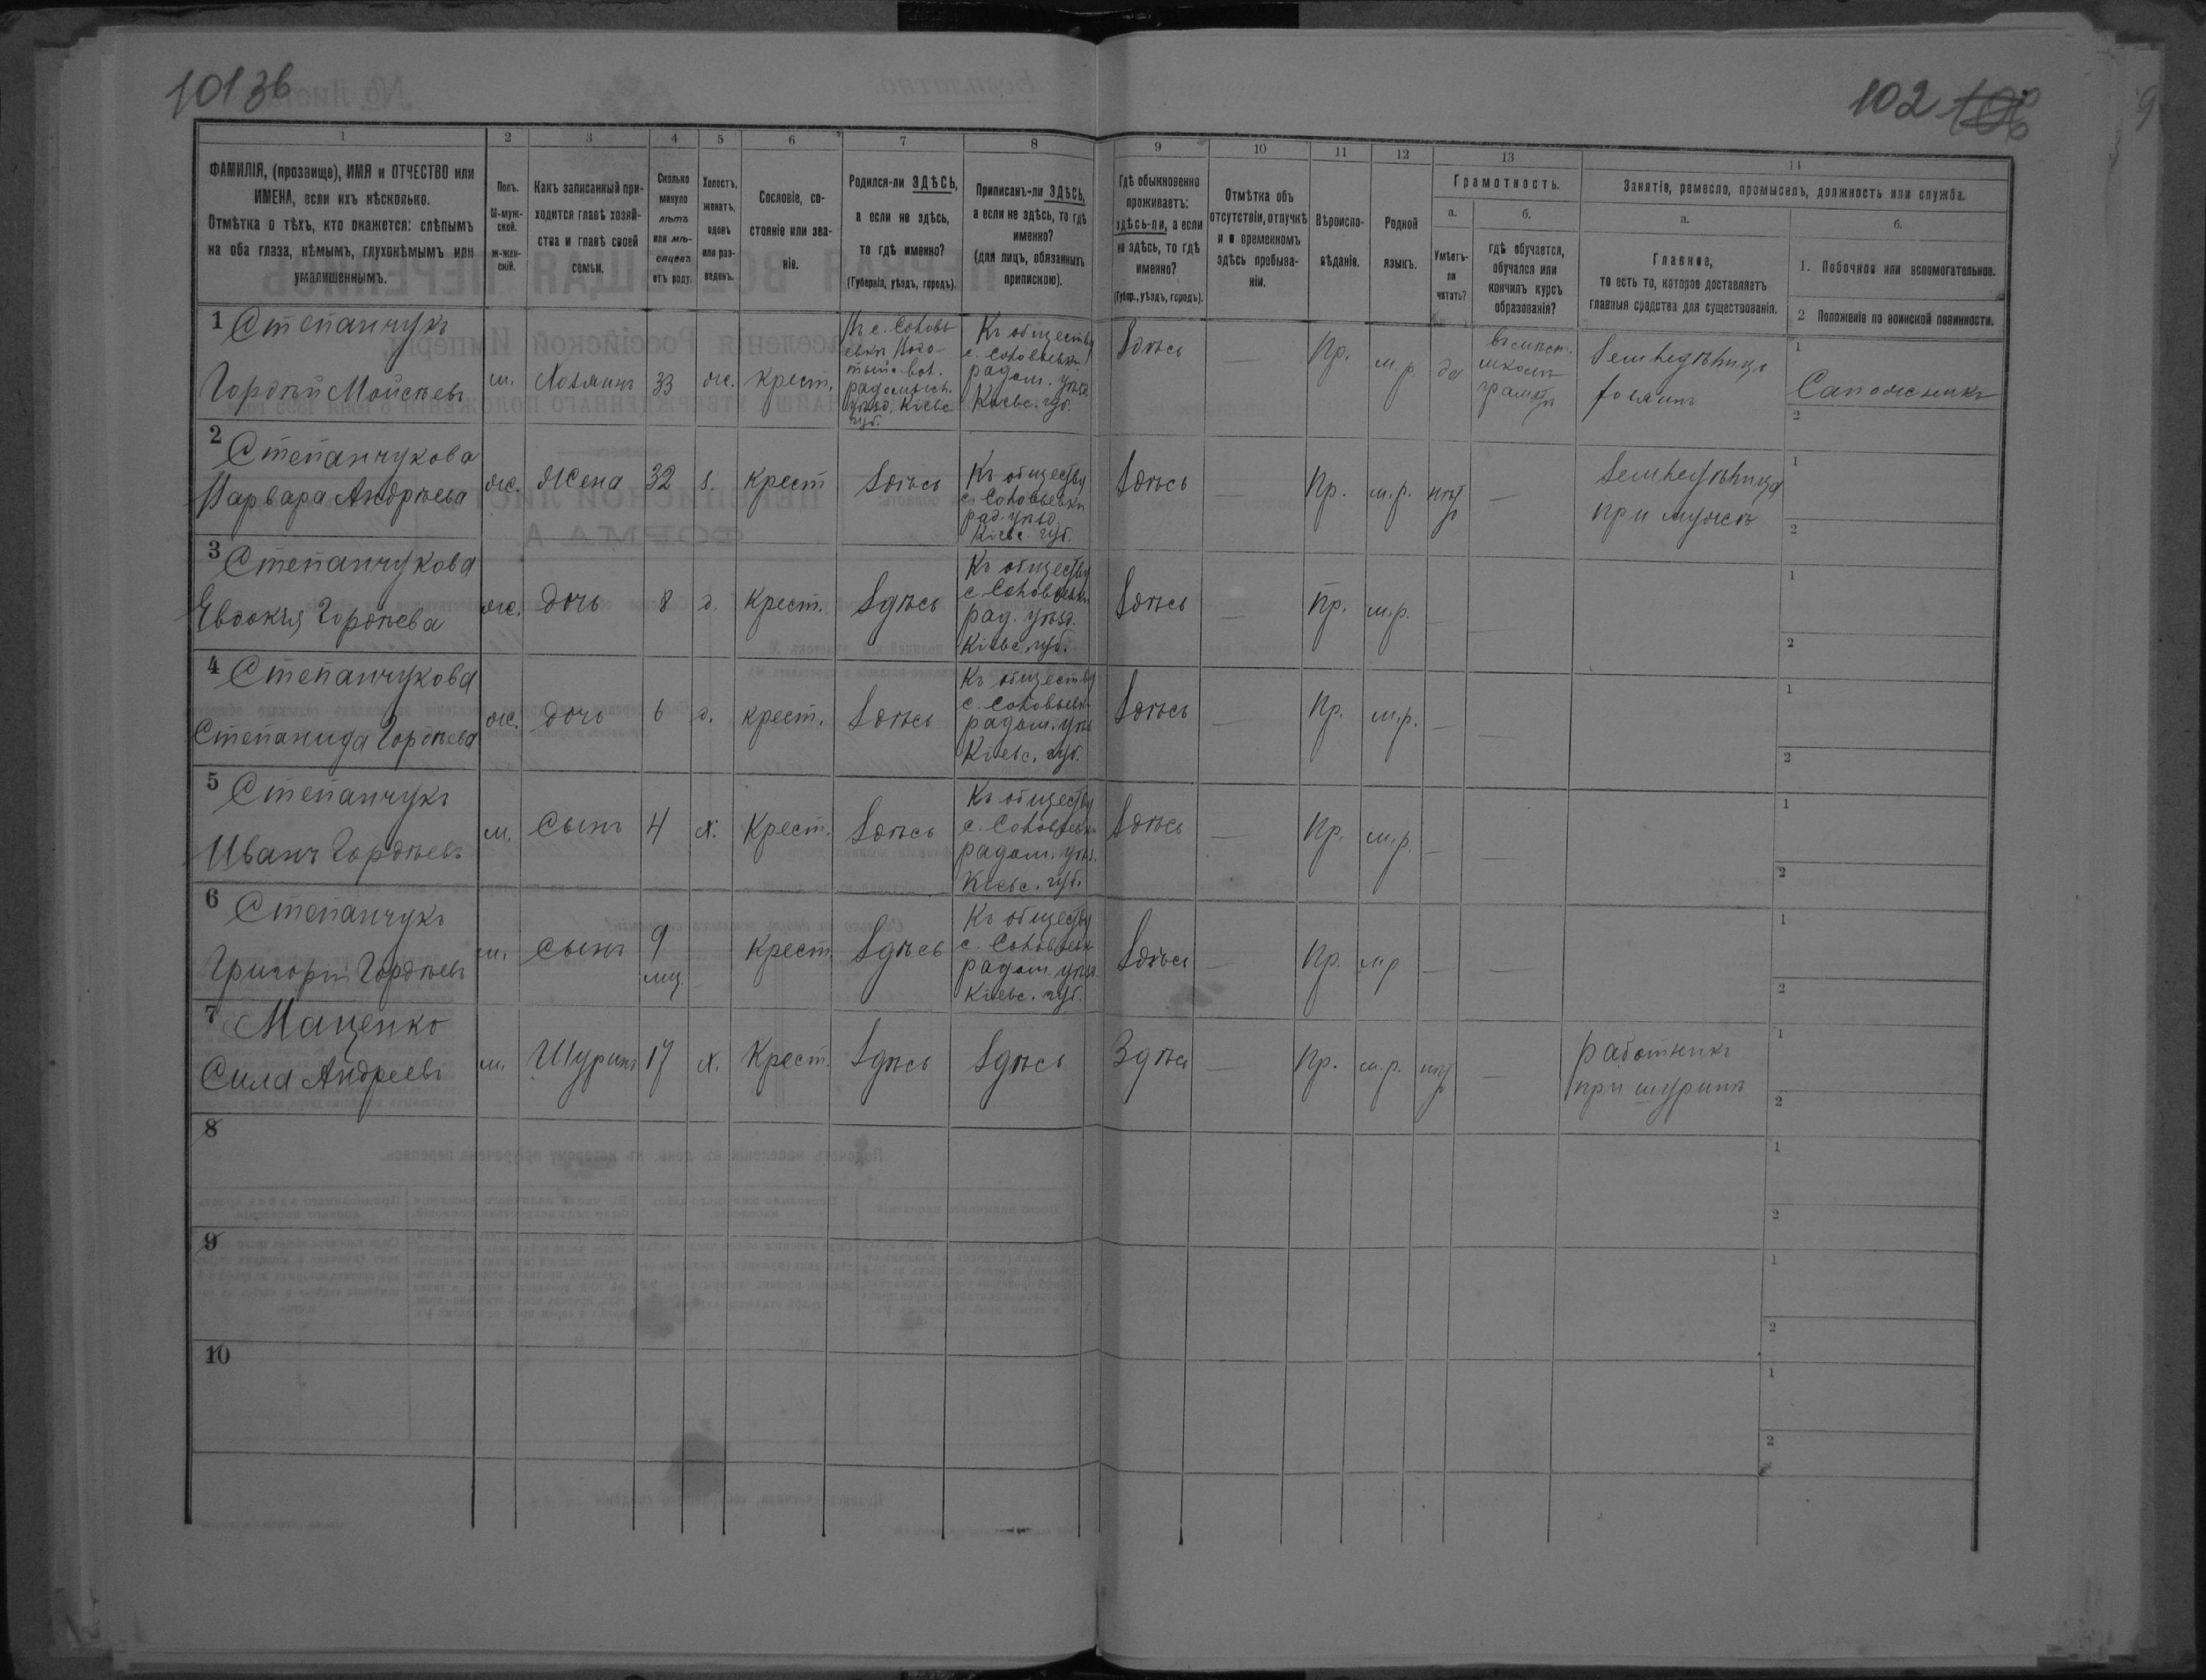 101 зв
102
1
2
3
4
5
6
7
8
9
10
11
12
13
14
ФАМИЛІЯ, (прозвище), ИМЯ и ОТЧЕСТВО или
ИМЕНА, если ихъ нѣсколько.
Отмѣтка о тѣхъ, кто окажется: слѣпымъ
на оба глаза, нѣмымъ, глухонѣмымъ или
умалишеннымъ.
Полъ.
М-муж-
ской.
Ж-жен-
скій.
Какъ записанный при-
ходится главѣ хозяй-
ства и главѣ своей
семьи.
Сколько
минуло
лѣтъ
или мѣ-
сяцевъ
отъ роду.
Холостъ,
женатъ,
вдовъ
или раз-
веденъ.
Сословіе, со-
стояніе или зва-
ніе.
Родился-ли ЗДѢСЬ,
а если не здѣсь,
то гдѣ именно?
(Губернія, уѣздъ, городъ).
Приписанъ-ли ЗДѢСЬ,
а если не здѣсь, то гдѣ
именно?
(для лицъ, обязанныхъ
припискою).
Гдѣ обыкновенно
проживаетъ:
здѣсь-ли, а если
не здѣсь, то гдѣ
именно?
(Губер., уѣздъ, городъ).
Отмѣтка объ
отсутствіи, отлучкѣ
и о временномъ
здѣсь пребыва-
ніи.
Вѣроиспо-
вѣданіе.
Родной
языкъ.
Грамотность.
а.
Умѣетъ-
ли
читать?
б.
гдѣ обучается,
обучался или
кончилъ курсъ
образованія?
Занятіе, ремесло, промыселъ, должность или служба.
а.
Главное,
то есть то, которое доставляетъ
главныя средства для существованія.
б.
1. Побочное или вспомогательное.
2 Положеніе по воинской повинности.
1 Степанчукъ
Гордѣй Мойсѣевъ
м.
Хозяинъ
33
ж.
крест.
Въ с. Соловь
евкѣ
радомысл.
уѣзд. Кіевс.
губ.
Къ обществу
с. Соловьевки
радом. уѣзд
Кіевс. губ.
Здѣсь
—
Пр.
м.р.
да
школѣ
Земледѣлецъ
хозяинъ
1
Сапожникъ
2
2 Степанчукова
Варвара Андрѣева
ж.
Жена
32
з.
крест
Здѣсь
Къ обществу
с. Соловьевки
рад. уѣзд.
Кіевс. губ.
Здѣсь
—
Пр.
м.р.
нѣт
—
Земледѣлица
при мужѣ
1
2
3 Степанчукова
Евдокія Гордѣева
ж.
дочь
8
д.
крест.
Здѣсь
Къ обществу
с. Соловьевки
рад. уѣзд.
Кіевс. губ.
Здѣсь
—
Пр.
м.р.
—
—
1
2
4 Степанчукова
Степанида Гордѣева
ж.
дочь
6
д.
крест.
Здѣсь
Къ обществу
с. Соловьевк
радом. уѣз
Кіевс. губ.
Здѣсь
—
Пр.
м.р.
—
—
1
2
5 Степанчукъ
Иванъ Гордѣевъ
м.
Сынъ
4
х.
Крест.
Здѣсь
Къ обществу
с. Соловьевки
радом. уѣз.
Кіевс. губ.
Здѣсь
—
Пр.
м.р.
—
—
1
2
6 Степанчукъ
Григорій Гордѣевъ
м.
сынъ
9
мц.
крест.
Здѣсь
Къ обществу
с. Соловьевк
радом. уѣзд.
Кіевс. губ.
Здѣсь
—
Пр.
мр
—
—
1
2
7 Маценко
Сила Андреевъ
м.
Шуринъ
17
х.
Крест.
Здѣсь
Здѣсь
Здѣсь
—
Пр.
м.р.
нѣт
—
работникъ
при шуринѣ
1
2
8
1
2
9
1
2
10
1
2